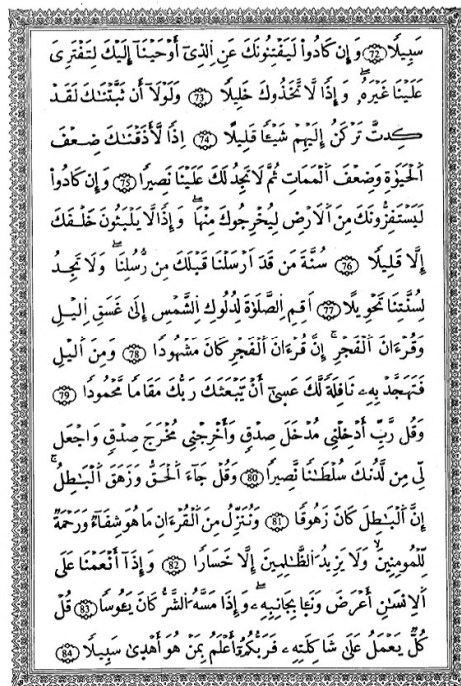 سَبِيلًا ٧٢ وَإِن كَادُوا۟ لَيَفْتِنُونَكَ عَنِ ٱلَّذِىٓ أَوْحَيْنَآ إِلَيْكَ لِتَفْتَرِىَ
عَلَيْنَا غَيْرَهُۥۖ وَإِذًا لَّاتَّخَذُوكَ خَلِيلًا ٧٣ وَلَوْلَآ أَن ثَبَّتْنَٰكَ لَقَدْ
كِدتَّ تَرْكَنُ إِلَيْهِمْ شَيْـًٔا قَلِيلًا ٧٤ إِذًا لَّأَذَقْنَٰكَ ضِعْفَ
ٱلْحَيَوٰةِ وَضِعْفَ ٱلْمَمَاتِ ثُمَّ لَا تَجِدُ لَكَ عَلَيْنَا نَصِيرًا ٧٥ وَإِن كَادُوا۟
لَيَسْتَفِزُّونَكَ مِنَ ٱلْأَرْضِ لِيُخْرِجُوكَ مِنْهَاۖ وَإِذًا لَّا يَلْبَثُونَ خَلْفَكَ
إِلَّا قَلِيلًا ٧٦ سُنَّةَ مَن قَدْ أَرْسَلْنَا قَبْلَكَ مِن رُّسُلِنَاۖ وَلَا تَجِدُ
لِسُنَّتِنَا تَحْوِيلًا ٧٧ أَقِمِ ٱلصَّلَوٰةَ لِدُلُوكِ ٱلشَّمْسِ إِلَىٰ غَسَقِ ٱلَّيْلِ
وَقُرْءَانَ ٱلْفَجْرِۖ إِنَّ قُرْءَانَ ٱلْفَجْرِ كَانَ مَشْهُودًا ٧٨ وَمِنَ ٱلَّيْلِ
فَتَهَجَّدْ بِهِۦ نَافِلَةً لَّكَ عَسَىٰٓ أَن يَبْعَثَكَ رَبُّكَ مَقَامًا مَّحْمُودًا ٧٩
وَقُل رَّبِّ أَدْخِلْنِى مُدْخَلَ صِدْقٍ وَأَخْرِجْنِى مُخْرَجَ صِدْقٍ وَٱجْعَل
لِّى مِن لَّدُنكَ سُلْطَٰنًا نَّصِيرًا ٨٠ وَقُلْ جَآءَ ٱلْحَقُّ وَزَهَقَ ٱلْبَٰطِلُۚ
إِنَّ ٱلْبَٰطِلَ كَانَ زَهُوقًا ٨١ وَنُنَزِّلُ مِنَ ٱلْقُرْءَانِ مَا هُوَ شِفَآءٌ وَرَحْمَةٌ
لِّلْمُومِنِينَۙ وَلَا يَزِيدُ ٱلظَّٰلِمِينَ إِلَّا خَسَارًا ٨٢ وَإِذَآ أَنْعَمْنَا عَلَى
ٱلْإِنسَٰنِ أَعْرَضَ وَنَـَٔا بِجَانِبِهِۦۖ وَإِذَا مَسَّهُ ٱلشَّرُّ كَانَ يَـُٔوسًا ٨٣ قُلْ
كُلٌّ يَعْمَلُ عَلَىٰ شَاكِلَتِهِۦ فَرَبُّكُمُۥٓ أَعْلَمُ بِمَنْ هُوَ أَهْدَىٰ سَبِيلًا ٨٤